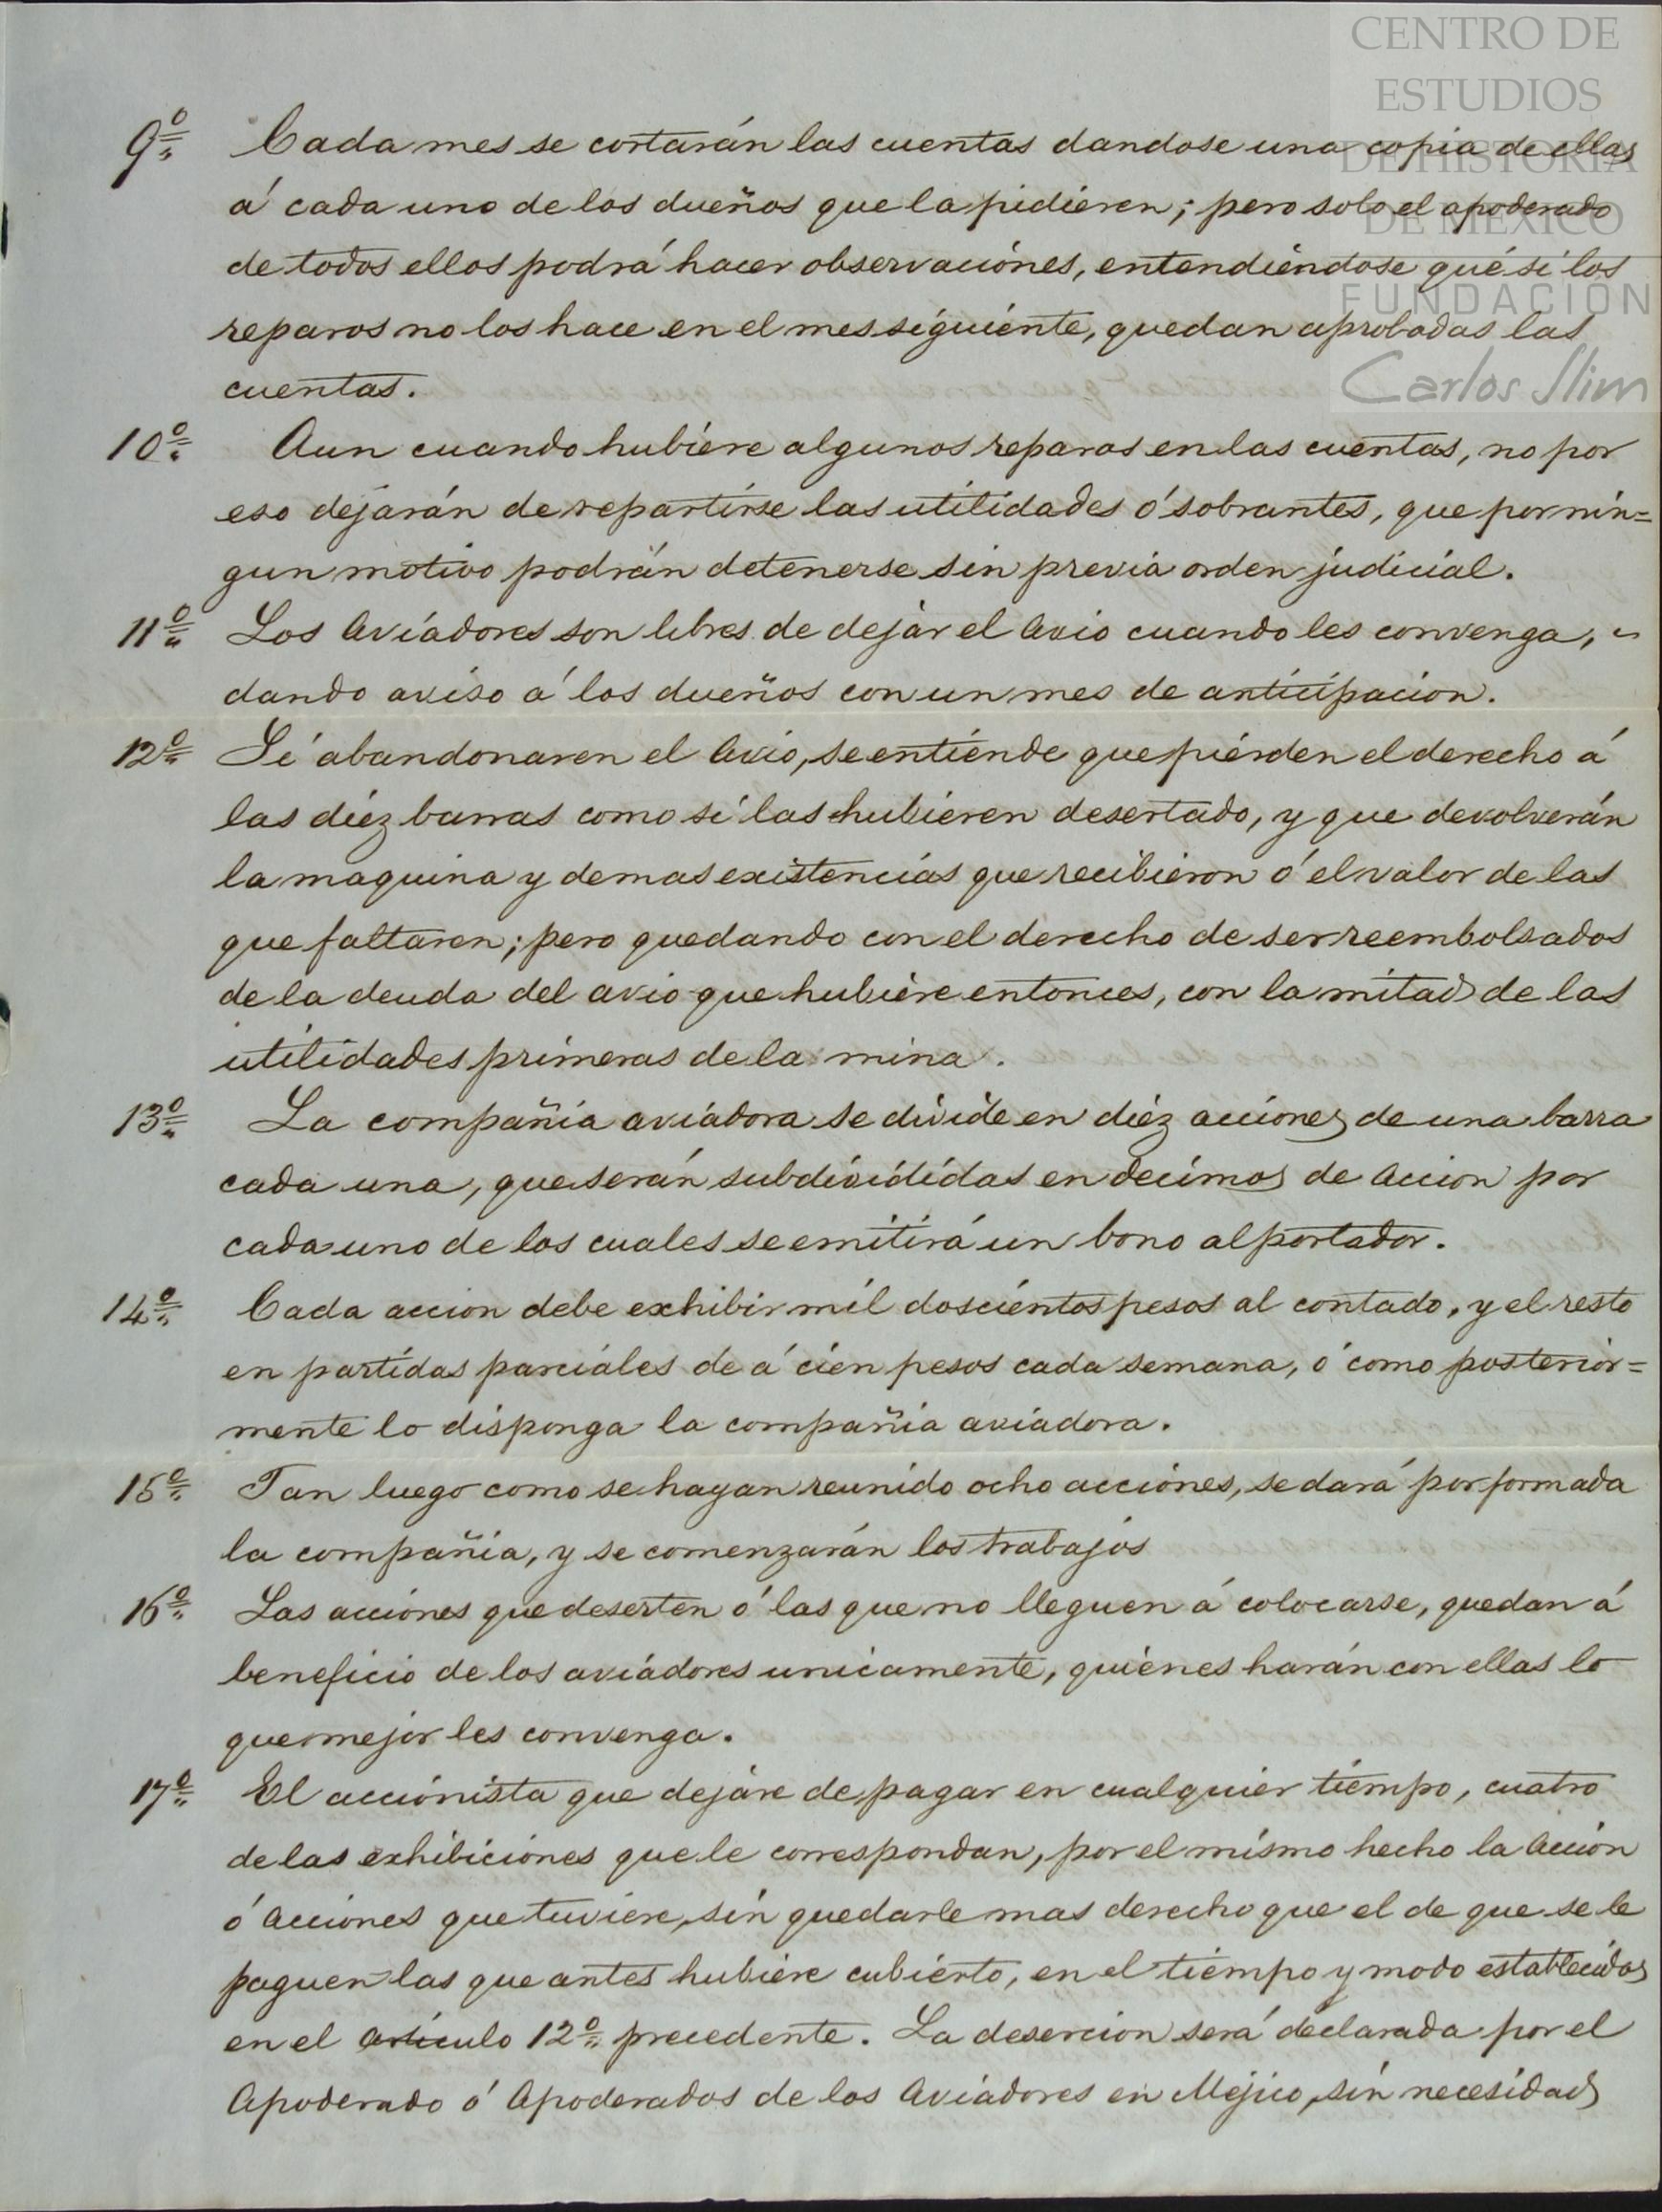 CENTRO DE
ESTUDIOS
DE HISTORIA
DE MÉXICO
FUNDACIÓN
Carlos Slim
9º Cada mes se cortarán las cuentas dandose una copia de ellas
á cada uno de los dueños que la pidieren; pero solo el apoderado
de todos ellos podrá hacer observaciones, entendiéndose que si los
reparos no los hace en el mes siguiente, quedan aprobadas las
cuentas.
10º Aun cuando hubiere algunos reparos en las cuentas, no por
eso dejarán de repartirse las utilidades ó sobrantes, que por nin=
gun motivo podrán detenerse sin previa orden judicial.
11º Los Aviadores son libres de dejar el Avio cuando les convenga,
dando aviso á los dueños con un mes de anticipacion.
12º Si abandonaren el Avio, se entiende que pierden el derecho á
las diez barras como si las hubieren desertado, y que devolverán
la maquina y demas existencias que recibieron ó el valor de las
que faltaren; pero quedando con el derecho de ser reembolsados
de la deuda del avio que hubiere entonces, con la mitad de las
utilidades primeras de la mina.
13º La compañia aviadora se divide en diez acciones de una barra
cada una, que serán subdivididas en decimos de Accion por
cada uno de los cuales se emitirá un bono al portador.
14º Cada accion debe exhibir mil doscientos pesos al contado, y el resto
en partidas parciales de á cien pesos cada semana, ó como posterior=
mente lo disponga la compañia aviadora.
15º Tan luego como se hayan reunido ocho acciones, se dará por formada
la compañia, y se comenzarán los trabajos
16º Las acciones que deserten ó las que no lleguen á colocarse, quedan á
beneficio de los aviadores unicamente, quienes harán con ellas lo
que mejor les convenga.
17º El accionista que dejáre de pagar en cualquier tiempo, cuatro
de las exhibiciones que le correspondan, por el mismo hecho la Accion
ó Acciones que tuviere, sin quedarle mas derecho que el de que se le
paguen las que antes hubiere cubierto, en el tiempo y modo establecidos
en el Articulo 12º precedente. La desercion será declarada por el
Apoderado ó Apoderados de los Aviadores en Méjico, sin necesidad